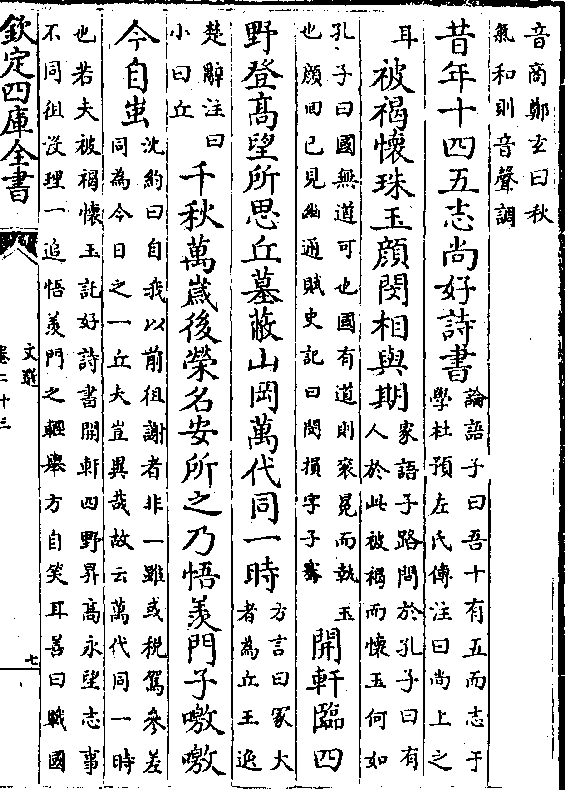 音商鄭玄曰秋
氣和則音聲調
昔年十四五志尚好詩書
論語子曰吾十有五而志于
學杜預左氏傳注曰尚上之
耳
被褐懷珠玉顔閔相與期
家語子路問於孔子曰有
人於此被褐而懷玉何如
孔子曰國無道可也國有道則衮冕而執玉
也顔回已見幽通賦史記曰閔損字子騫
開軒臨四
野登髙望所思丘墓蔽山岡萬代同一時
方言曰冢大
者為丘王逸
楚辭注曰
小曰丘
千秋萬嵗後榮名安所之乃悟羨門子噭噭
今自蚩
沈約曰自我以前徂謝者非一雖或税駕參差
同為今日之一丘夫豈異哉故云萬代同一時
也若夫被褐懷玉託好詩書開軒四野昇髙永望志事
不同徂沒理一追悟羨門之輕舉方自笑耳善曰戰國
欽定四庫全書
文選
卷二十三
七